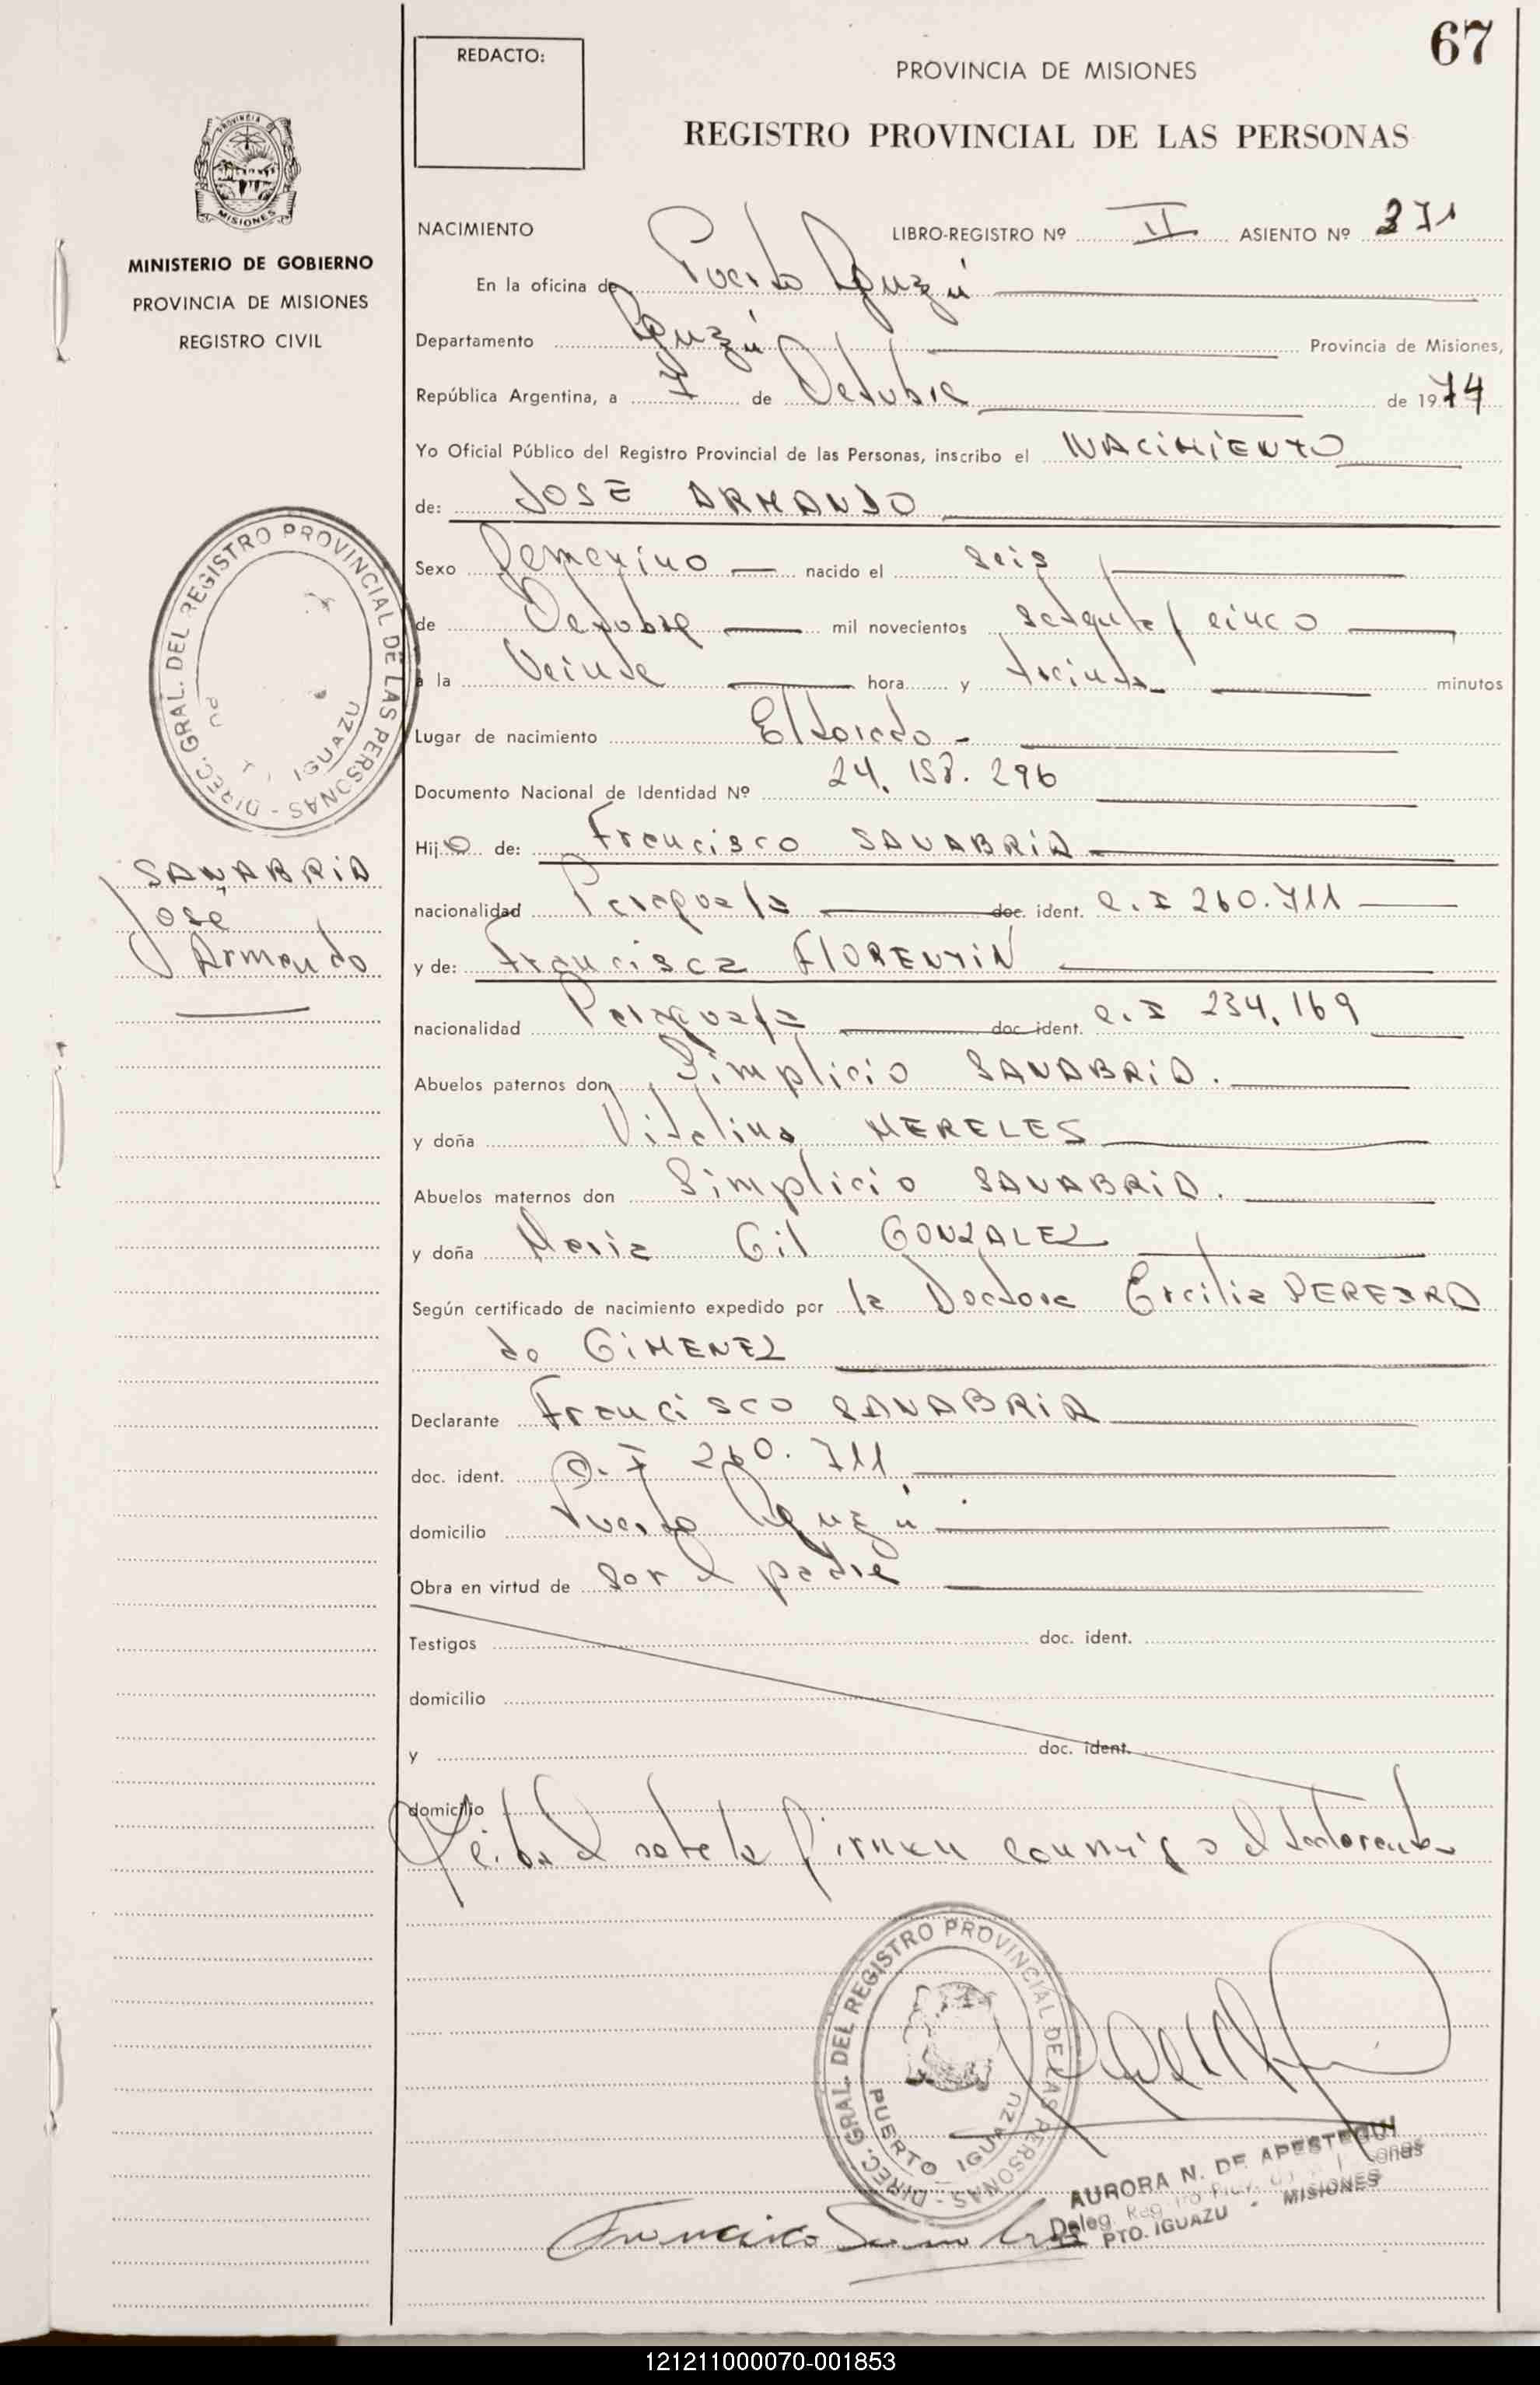 67
REDACTO:
PROVINCIA DE MISIONES
REGISTRO PROVINCIAL DE LAS PERSONAS
PROVINCIA DE
MISIONES
MINISTERIO DE GOBIERNO
PROVINCIA DE MISIONES
REGISTRO CIVIL
NACIMIENTO LIBRO-REGISTRO Nº II ASIENTO Nº 371
En la oficina de Puerto Iguazú
Departamento Iguazú Provincia de Misiones,
República Argentina, a 7 de Octubre de 1974
Yo Oficial Público del Registro Provincial de las Personas, inscribo el NACIMIENTO
de: JOSE ARMANDO
Sexo Femenino nacido el seis
de Octubre mil novecientos setenta y cinco
a la Veinte hora y treinta minutos
Lugar de nacimiento Eldorado -
Documento Nacional de Identidad Nº 24.158.296
Hijo de: Francisco SANABRIA
nacionalidad Paraguaya doc. ident. C.I 260.711
y de: Francisca FLORENTIN
nacionalidad Paraguaya doc. ident. C.I 234.169
Abuelos paternos don Simplicio SANABRIA.
y doña Vitalina MERELES
Abuelos maternos don Simplicio SANABRIA.
y doña Maria Gil GONZALEZ
Según certificado de nacimiento expedido por la Doctora Ercilia PEREIRA
de GIMENEZ
Declarante Francisco SANABRIA
doc. ident. C.I 260.711
domicilio Puerto Iguazú
Obra en virtud de Ser el padre
Testigos doc. ident.
domicilio
y doc. ident.
domicilio
Leida el acta la firman conmigo el declarante
SANABRIA
José
Armando
DIREC. GRAL. DEL REGISTRO PROVINCIAL DE LAS PERSONAS -
PU IGUAZU
DIREC. GRAL. DEL REGISTRO PROVINCIAL DE LAS PERSONAS -
PUERTO IGUAZU
AURORA N. DE APESTEGUI
Deleg.
PTO. IGUAZU - MISIONES
Francisco Sanabria
121211000070-001853